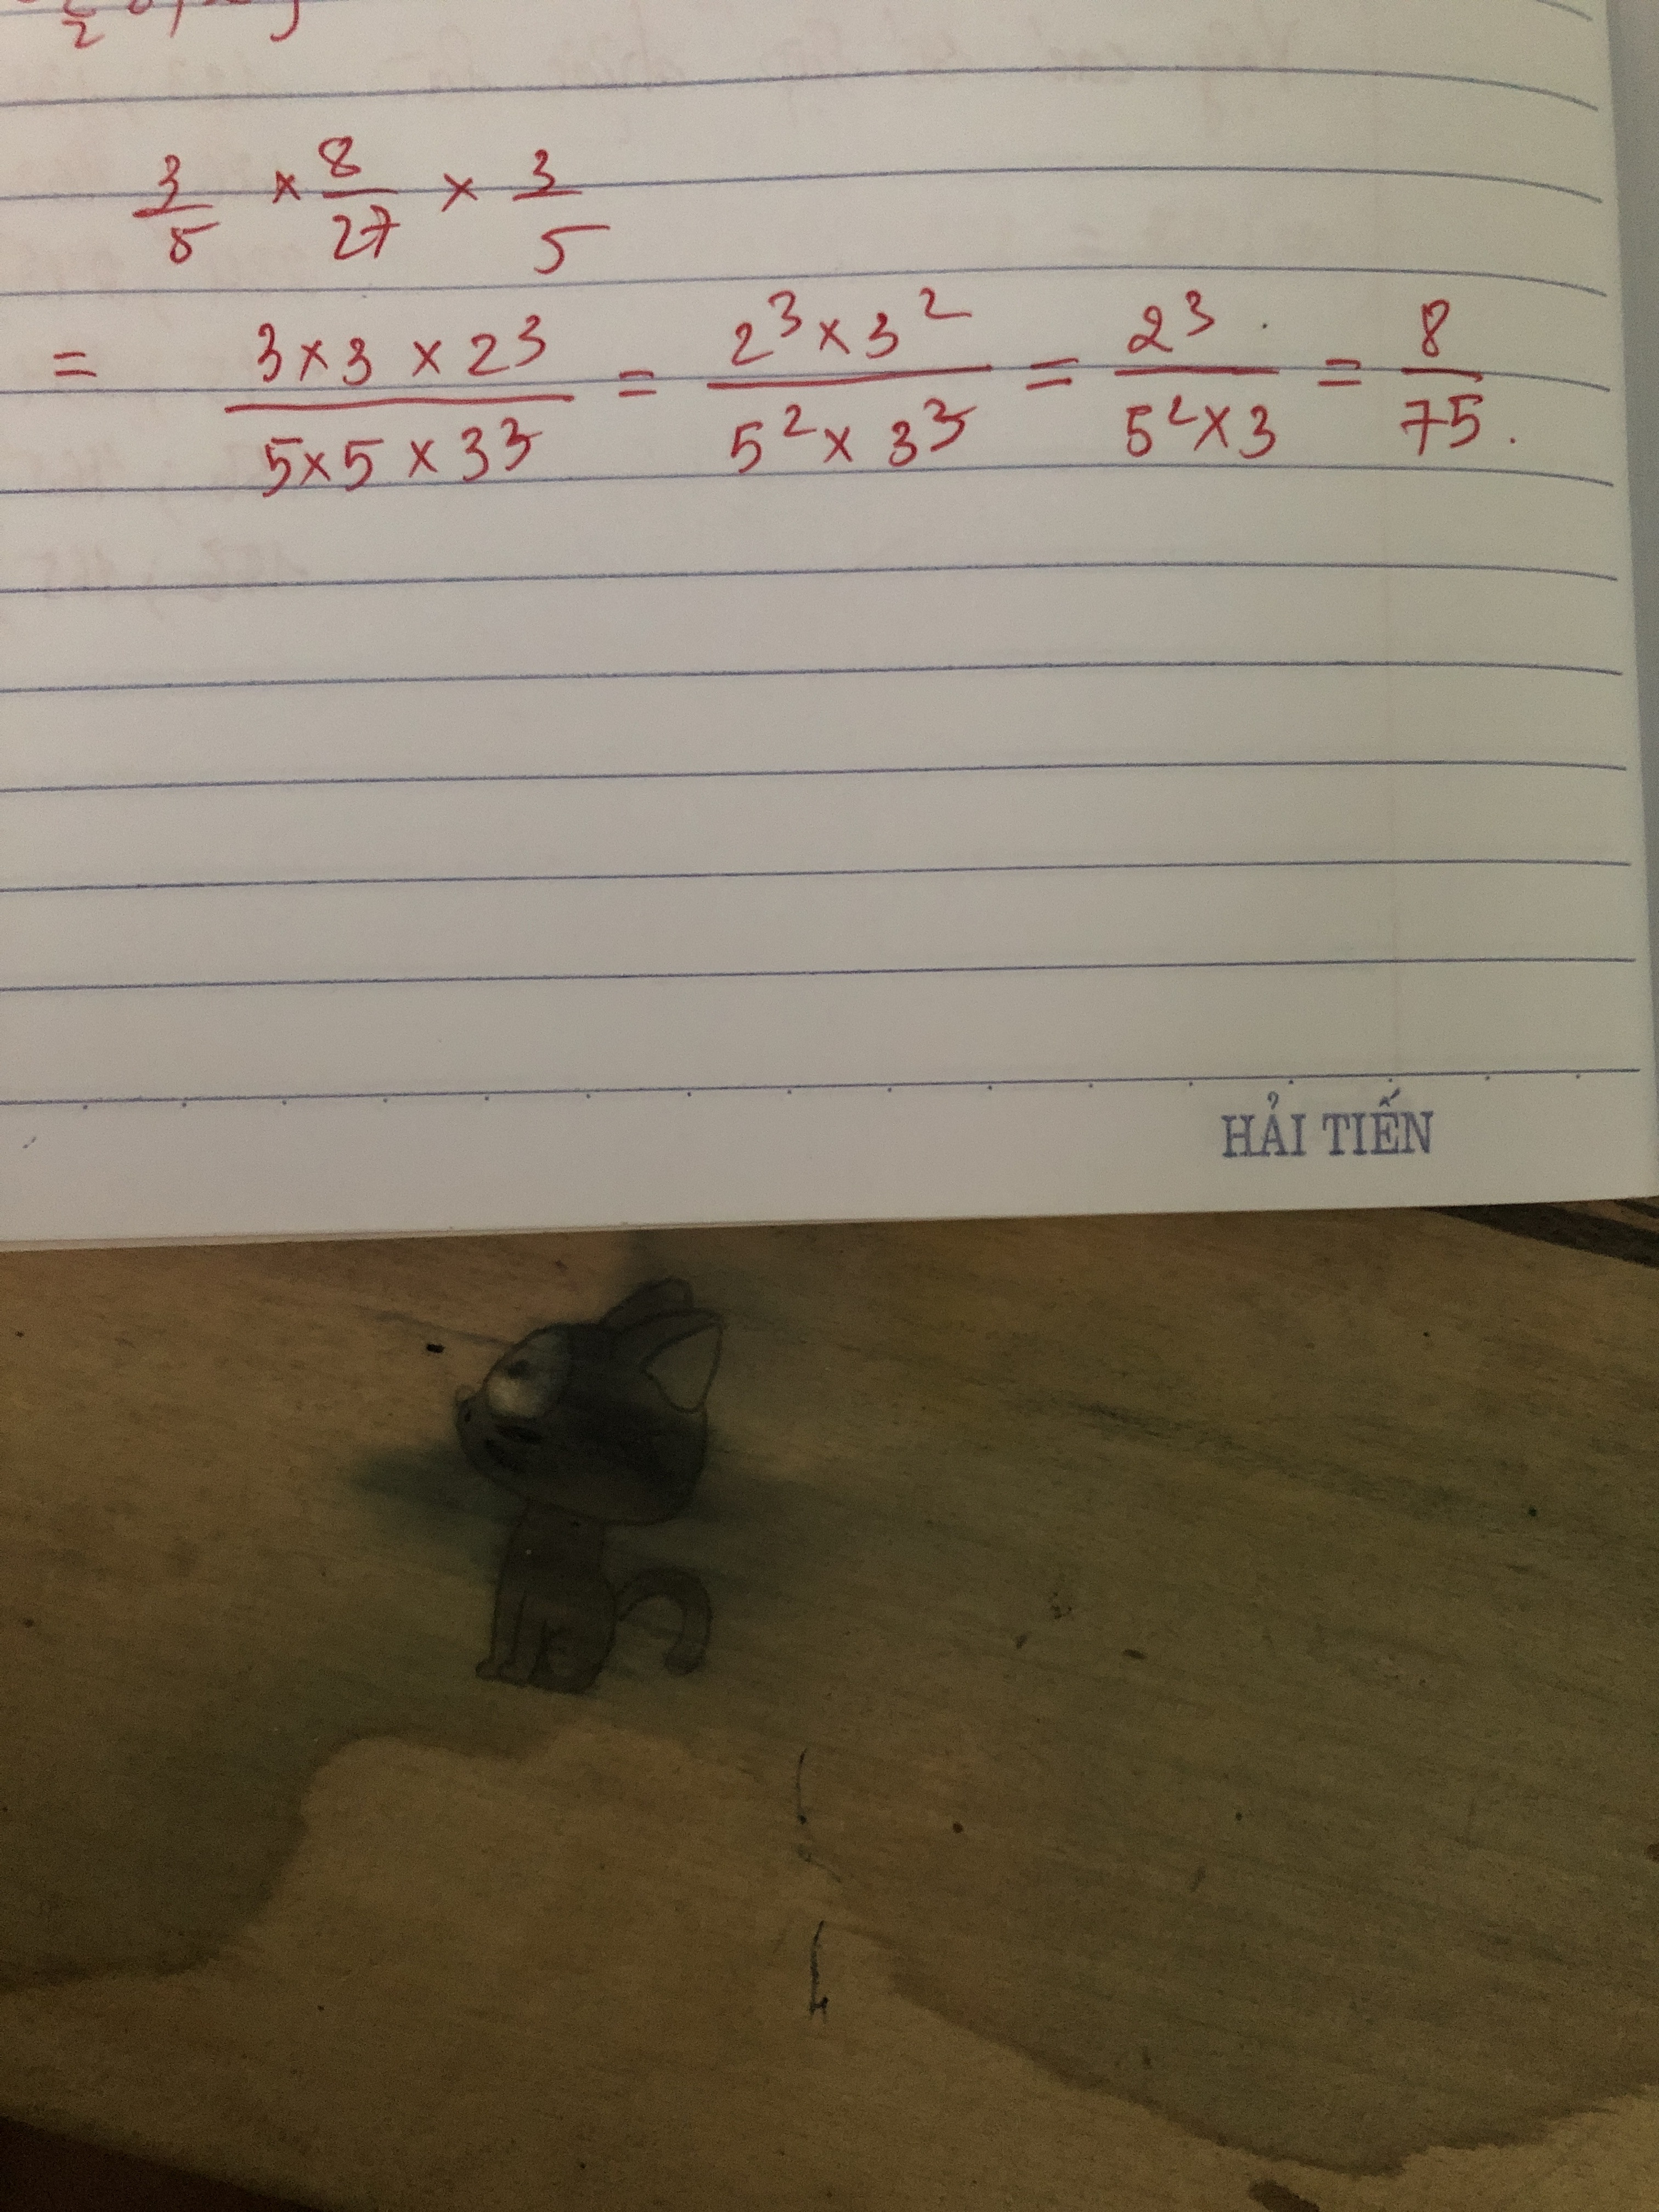 3/5 × 8/27 × 3/5
= 3×3×2³/5×5×3³ = 2³×3²/5²×3³ = 2³/5²×3 = 8/75.
HẢI TIẾN